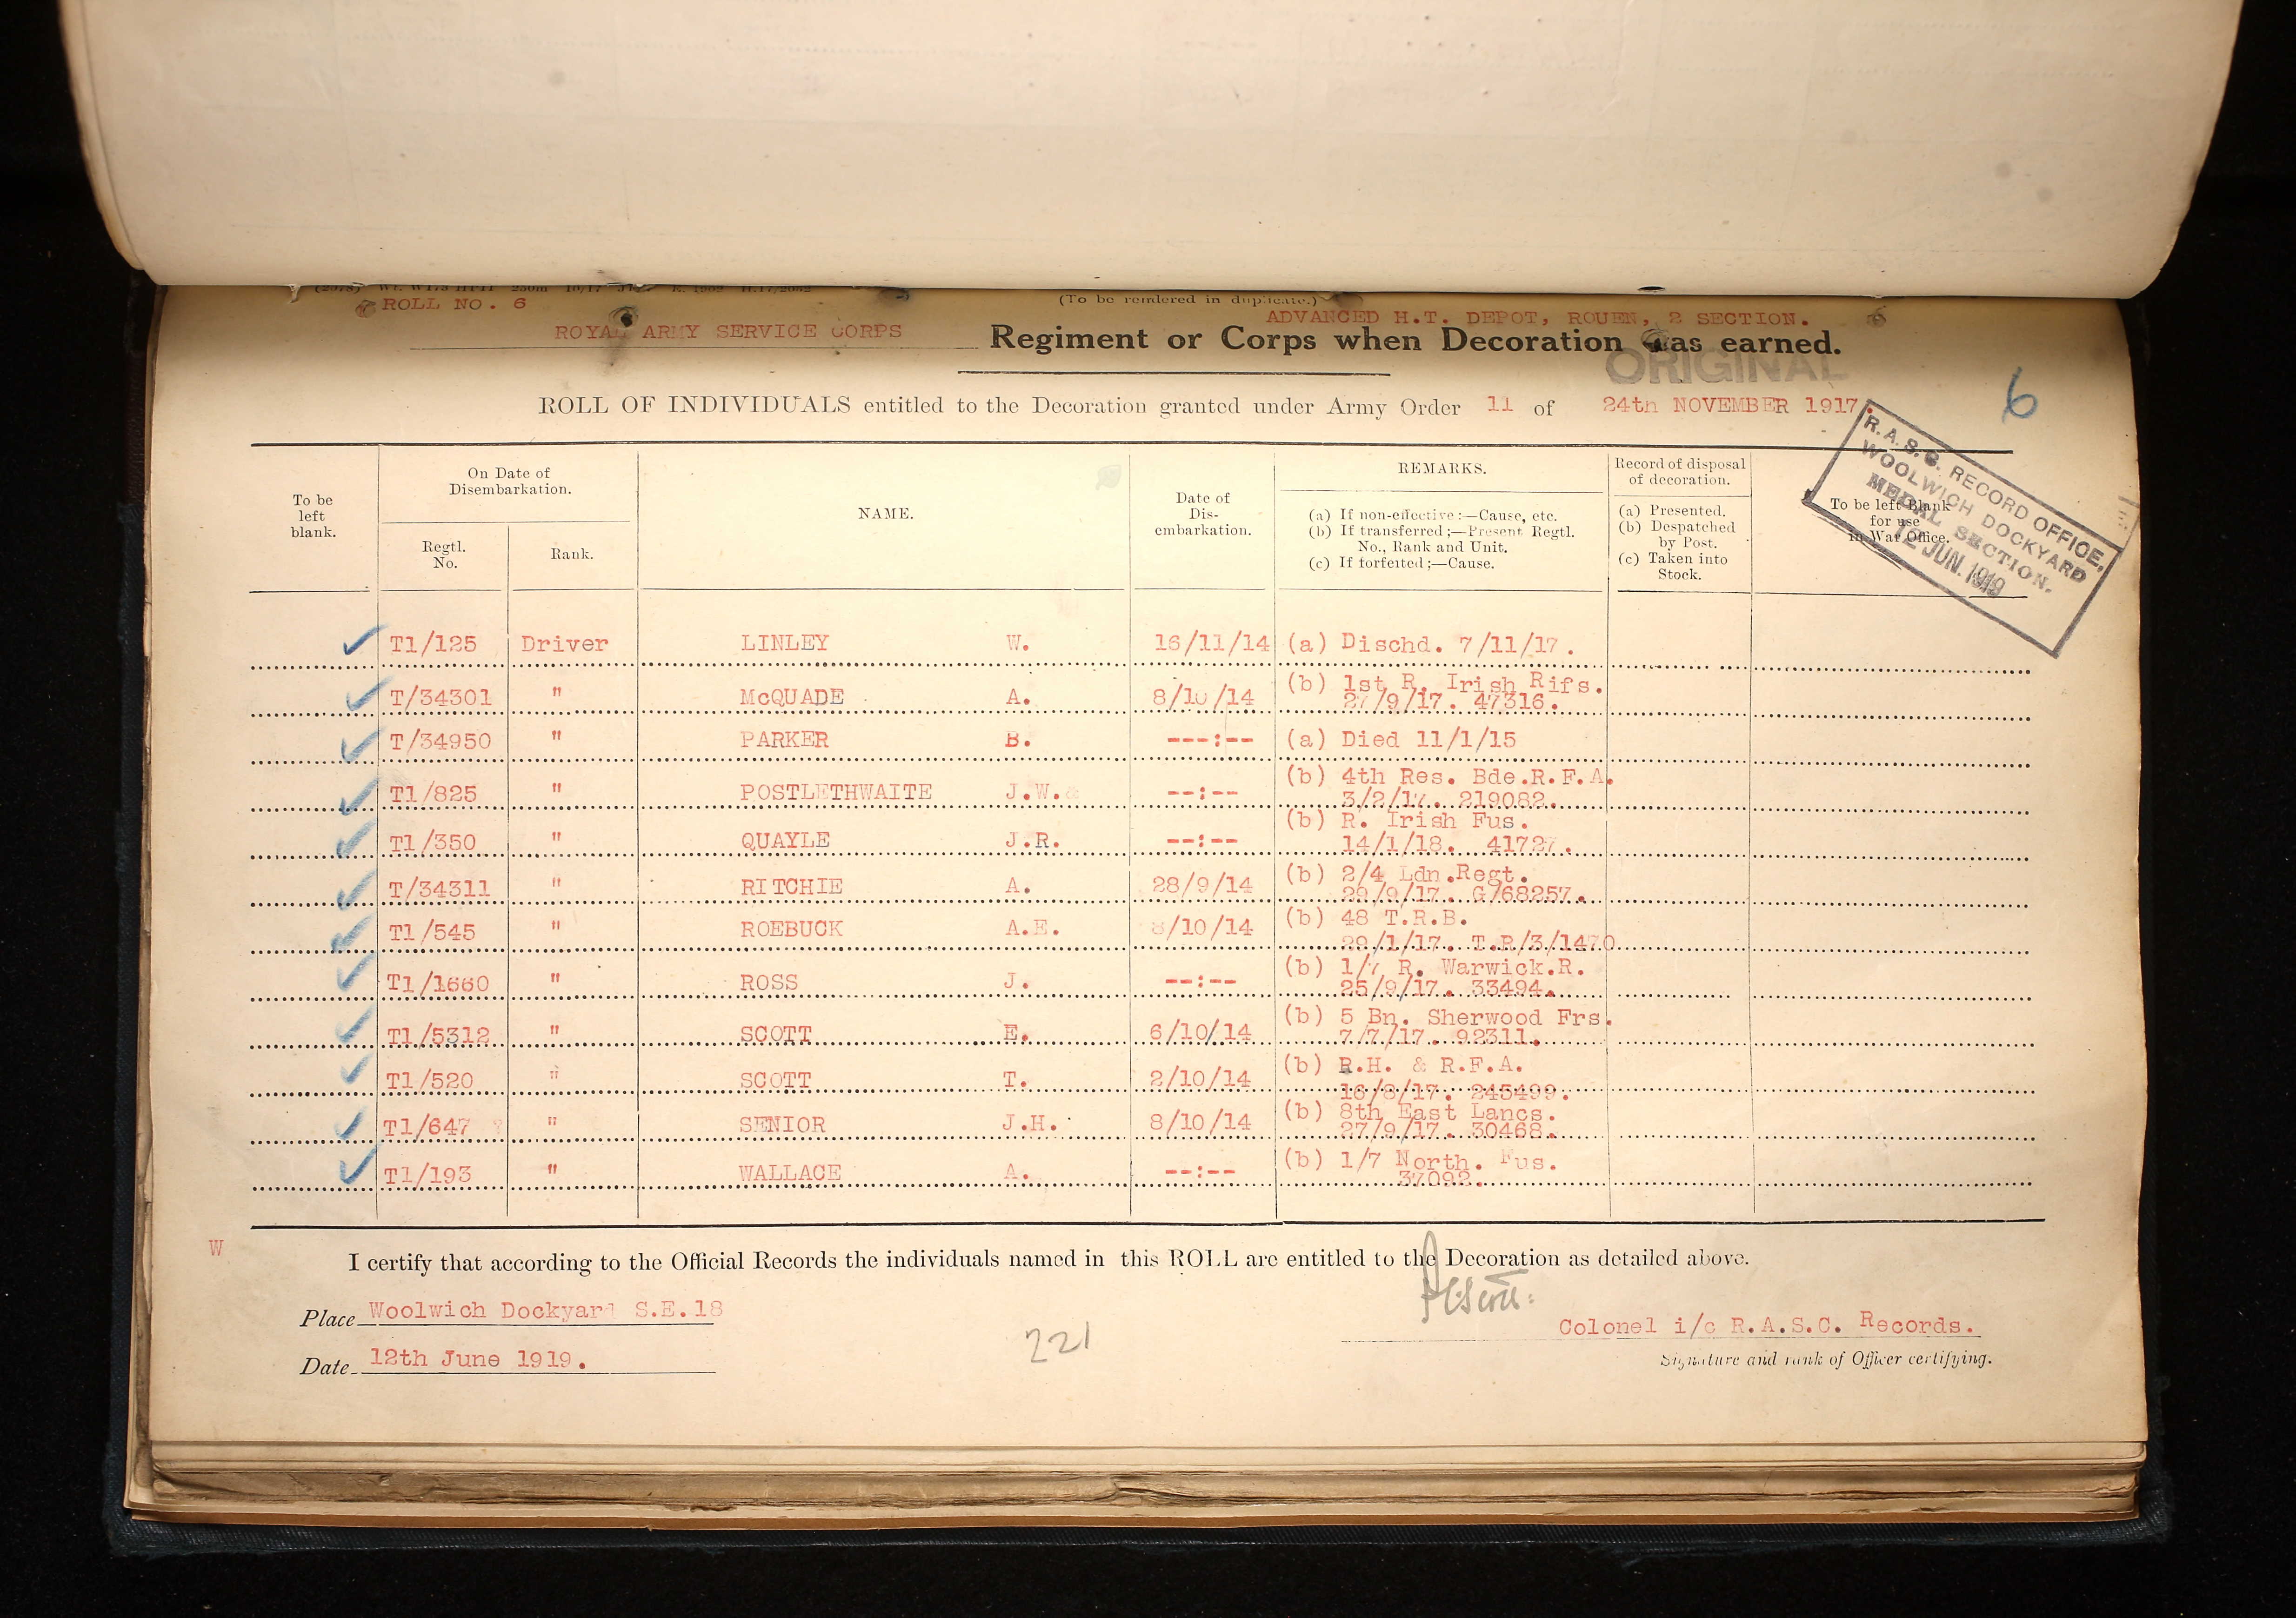 ROLL NO. 6
(To be rendered in duplicate.)
ADVANCED H.T. DEPOT, ROUEN, 2 SECTION.
ROYAL ARMY SERVICE CORPS Regiment or Corps when Decoration was earned.
ORIGINAL
6
ROLL OF INDIVIDUALS entitled to the Decoration granted under Army Order 11 of 24th NOVEMBER 1917.
R.A.S.C. RECORD OFFICE,
WOOLWICH DOCKYARD
MEDAL SECTION.
12 JUN. 1919
To be left blank.
On Date of Disembarkation.
Regtl. No.
Rank.
NAME.
Date of Disembarkation.
REMARKS.
(a) If non-effective:—Cause, etc.
(b) If transferred;—Present Regtl. No., Rank and Unit.
(c) If forfeited;—Cause.
Record of disposal of decoration.
(a) Presented.
(b) Despatched by Post.
(c) Taken into Stock.
To be left Blank for use in War Office.
T1/125 Driver LINLEY W. 16/11/14 (a) Dischd. 7/11/17.
T/34301 " McQUADE A. 8/10/14 (b) 1st R. Irish Rifs.
27/9/17. 47316.
T/34950 " PARKER B. ---:-- (a) Died 11/1/15
T1/825 " POSTLETHWAITE J.W. --:-- (b) 4th Res. Bde.R.F.A.
3/2/17. 219082.
T1/350 " QUAYLE J.R. --:-- (b) R. Irish Fus.
14/1/18. 41727.
T/34311 " RITCHIE A. 28/9/14 (b) 2/4 Ldn.Regt.
29/9/17. G/68257.
T1/545 " ROEBUCK A.E. 8/10/14 (b) 48 T.R.B.
29/1/17. T.R/3/1470
T1/1660 " ROSS J. --:-- (b) 1/7 R. Warwick.R.
25/9/17. 33494.
T1/5312 " SCOTT E. 6/10/14 (b) 5 Bn. Sherwood Frs.
7/7/17. 92311.
T1/520 " SCOTT T. 2/10/14 (b) R.H. & R.F.A.
16/8/17. 245499.
T1/647 " SENIOR J.H. 8/10/14 (b) 8th East Lancs.
27/9/17. 30468.
T1/193 " WALLACE A. --:-- (b) 1/7 North. Fus.
37092.
W
I certify that according to the Official Records the individuals named in this ROLL are entitled to the Decoration as detailed above.
Place Woolwich Dockyard S.E.18
Colonel i/c R.A.S.C. Records.
221
Date 12th June 1919.
Signature and rank of Officer certifying.